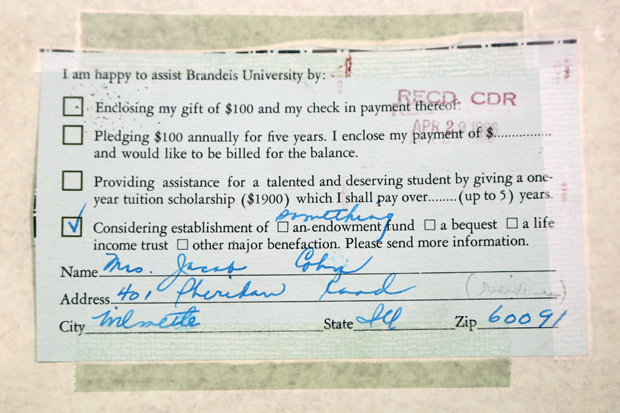 I am happy to assist Brandeis University by:
RECD. CDR
Enclosing my gift of $100 and my check in payment thereof.
APR 29
Pledging $100 annually for five years. I enclose my payment of $...............
and would like to be billed for the balance.
Providing assistance for a talented and deserving student by giving a one-
year tuition scholarship ($1900) which I shall pay over........(up to 5) years.
something
Considering establishment of □ an endowment fund □ a bequest □ a life
income trust □ other major benefaction. Please send more information.
Name Mrs. Jacob
Address 401 Sheridan Road
City Wilmette State Ill Zip 60091